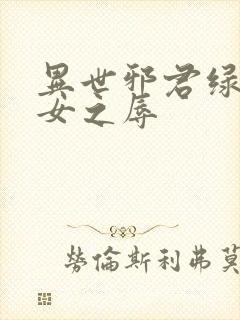 異世邪君绿
女之辱
勞倫斯利弗莫